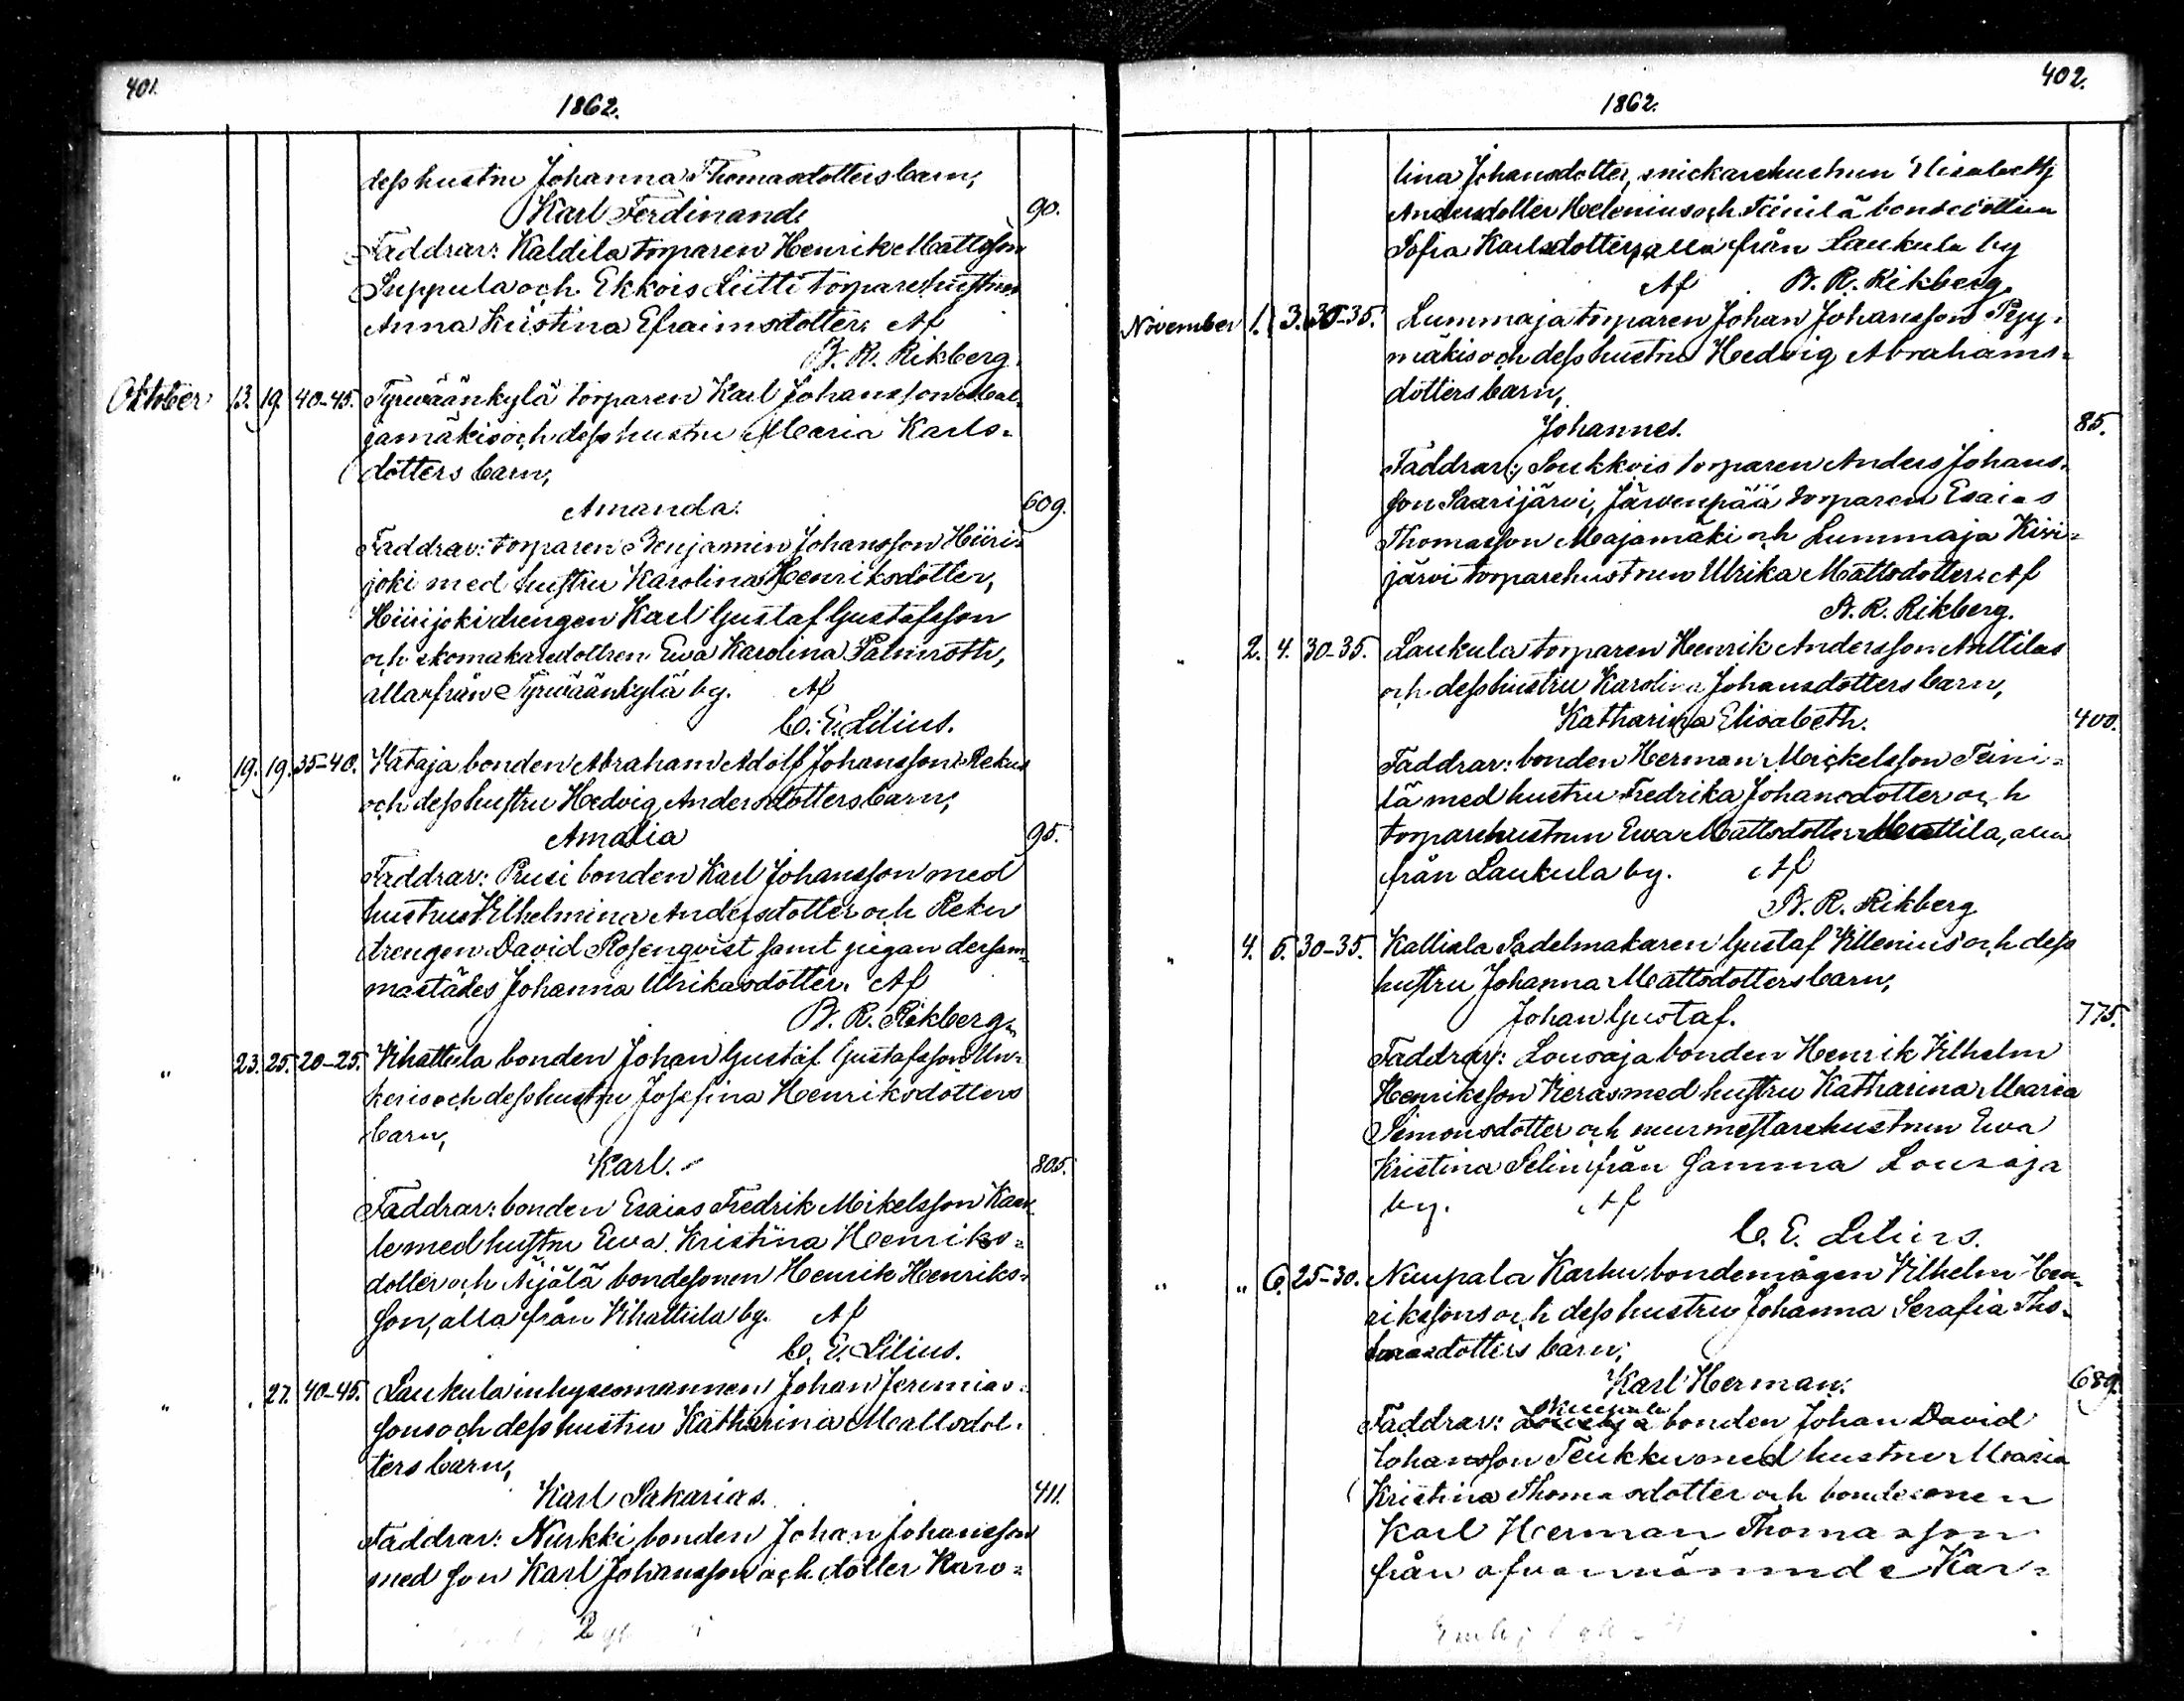 401.
1862.
dess hustru Johanna Thomasdotters barn,
Karl Ferdinand. 90.
Faddrar: Kaldila torparen Henrik Mattsson
Suppula och Ekkois Liitti torparehustrun
Anna Kristina Efraimsdotter. Af
B. R. Rikberg.
Oktober 13. 19. 40-45. Tyrväänkylä torparen Karl Johansson Mal-
jamäkis och dess hustru Maria Karls-
dotters barn,
Amanda. 609.
Faddrar: torparen Benjamin Johansson Hiiri-
joki med hustru Karolina Henriksdotter,
Hiirijoki drengen Karl Gustaf Gustafsson
och skomakaredottren Ewa Karolina Palmroth,
alla från Tyrväänkylä by. Af
C. E. Lilius.
" 19. 19. 35-40. Kataja bonden Abraham Adolf Johansson Rekus
och dess hustru Hedvig Andersdotters barn,
Amalia 95.
Faddrar: Prusi bonden Karl Johansson med
hustru Vilhelmina Andersdotter och Reku
drengen David Rosenqvist samt pigan dersam-
mastädes Johanna Ulrikasdotter. Af
B. R. Rikberg.
" 23. 25. 20-25. Vihattula bonden Johan Gustaf Gustafsson Un-
keris och dess hustru Josefina Henriksdotters
barn,
Karl. 805.
Faddrar: bonden Esaias Fredrik Mikelsson
le med hustru Ewa Kristina Henriks-
dotter och Äijälä bondesonen Henrik Henriks-
son, alla från Vihattula by. Af
C. E. Lilius.
" . 27. 40-45. Laukula inhysesmannen Johan Jeremias-
sons och dess hustru Katharina Mattsdot-
ters barn,
Karl Sakarias. 411.
Faddrar: Nurkki bonden Johan Johansson
med son Karl Johansson och dotter Karo-
402.
1862.
lina Johansdotter, snickarehustrun Elisabeth
Andersdotter Helenius och Teinilä bondedottren
Sofia Karlsdotter, alla från Laukula by
Af B. R. Rikberg.
November 1. 3. 30-35. Lummaja torparen Johan Johansson
mäkis och dess hustru Hedvig Abrahams-
dotters barn,
Johannes. 85.
Faddrar: Soukkois torparen Anders Johans-
son Saarijärvi, Järvenpää torparen Esaias
Thomasson Majamäki och Lummaja Kivi-
järvi torparehustrun Ulrika Mattsdotter. Af
B. R. Rikberg.
" 2. 4. 30-35. Laukula torparen Henrik Andersson Anttilas
och dess hustru Karolina Johansdotters barn,
Katharina Elisabeth. 400.
Faddrar: bonden Herman Mickelsson Teini-
lä med hustru Fredrika Johansdotter och
torparehustrun Ewa Mattsdotter Mattila, alla
från Laukula by. Af
B. R. Rikberg
" 4. 5. 30-35. Kalliala Sadelmakaren Gustaf Villenius och dess
hustru Johanna Mattsdotters barn,
Johan Gustaf. 775.
Faddrar: Lousaja bonden Henrik Vilhelm
Henriksson Vieras med hustru Katharina Maria
Simonsdotter och murmestarehustrun Ewa
Kristina Selin från samma Lousaja
by. Af
C. E. Lilius.
" " 6. 25-30. Nuupala Karhu bondemågen Vilhelm Hen-
rikssons och dess hustru Johanna Serafia Tho-
masdotters barn,
Karl Herman. 689.
Nuupala
Faddrar: bonden Johan David
Johansson Teukku med hustru Maria
Kristina Thomasdotter och bondesonen
Karl Herman Thomasson
från ofvannämnde Kar-